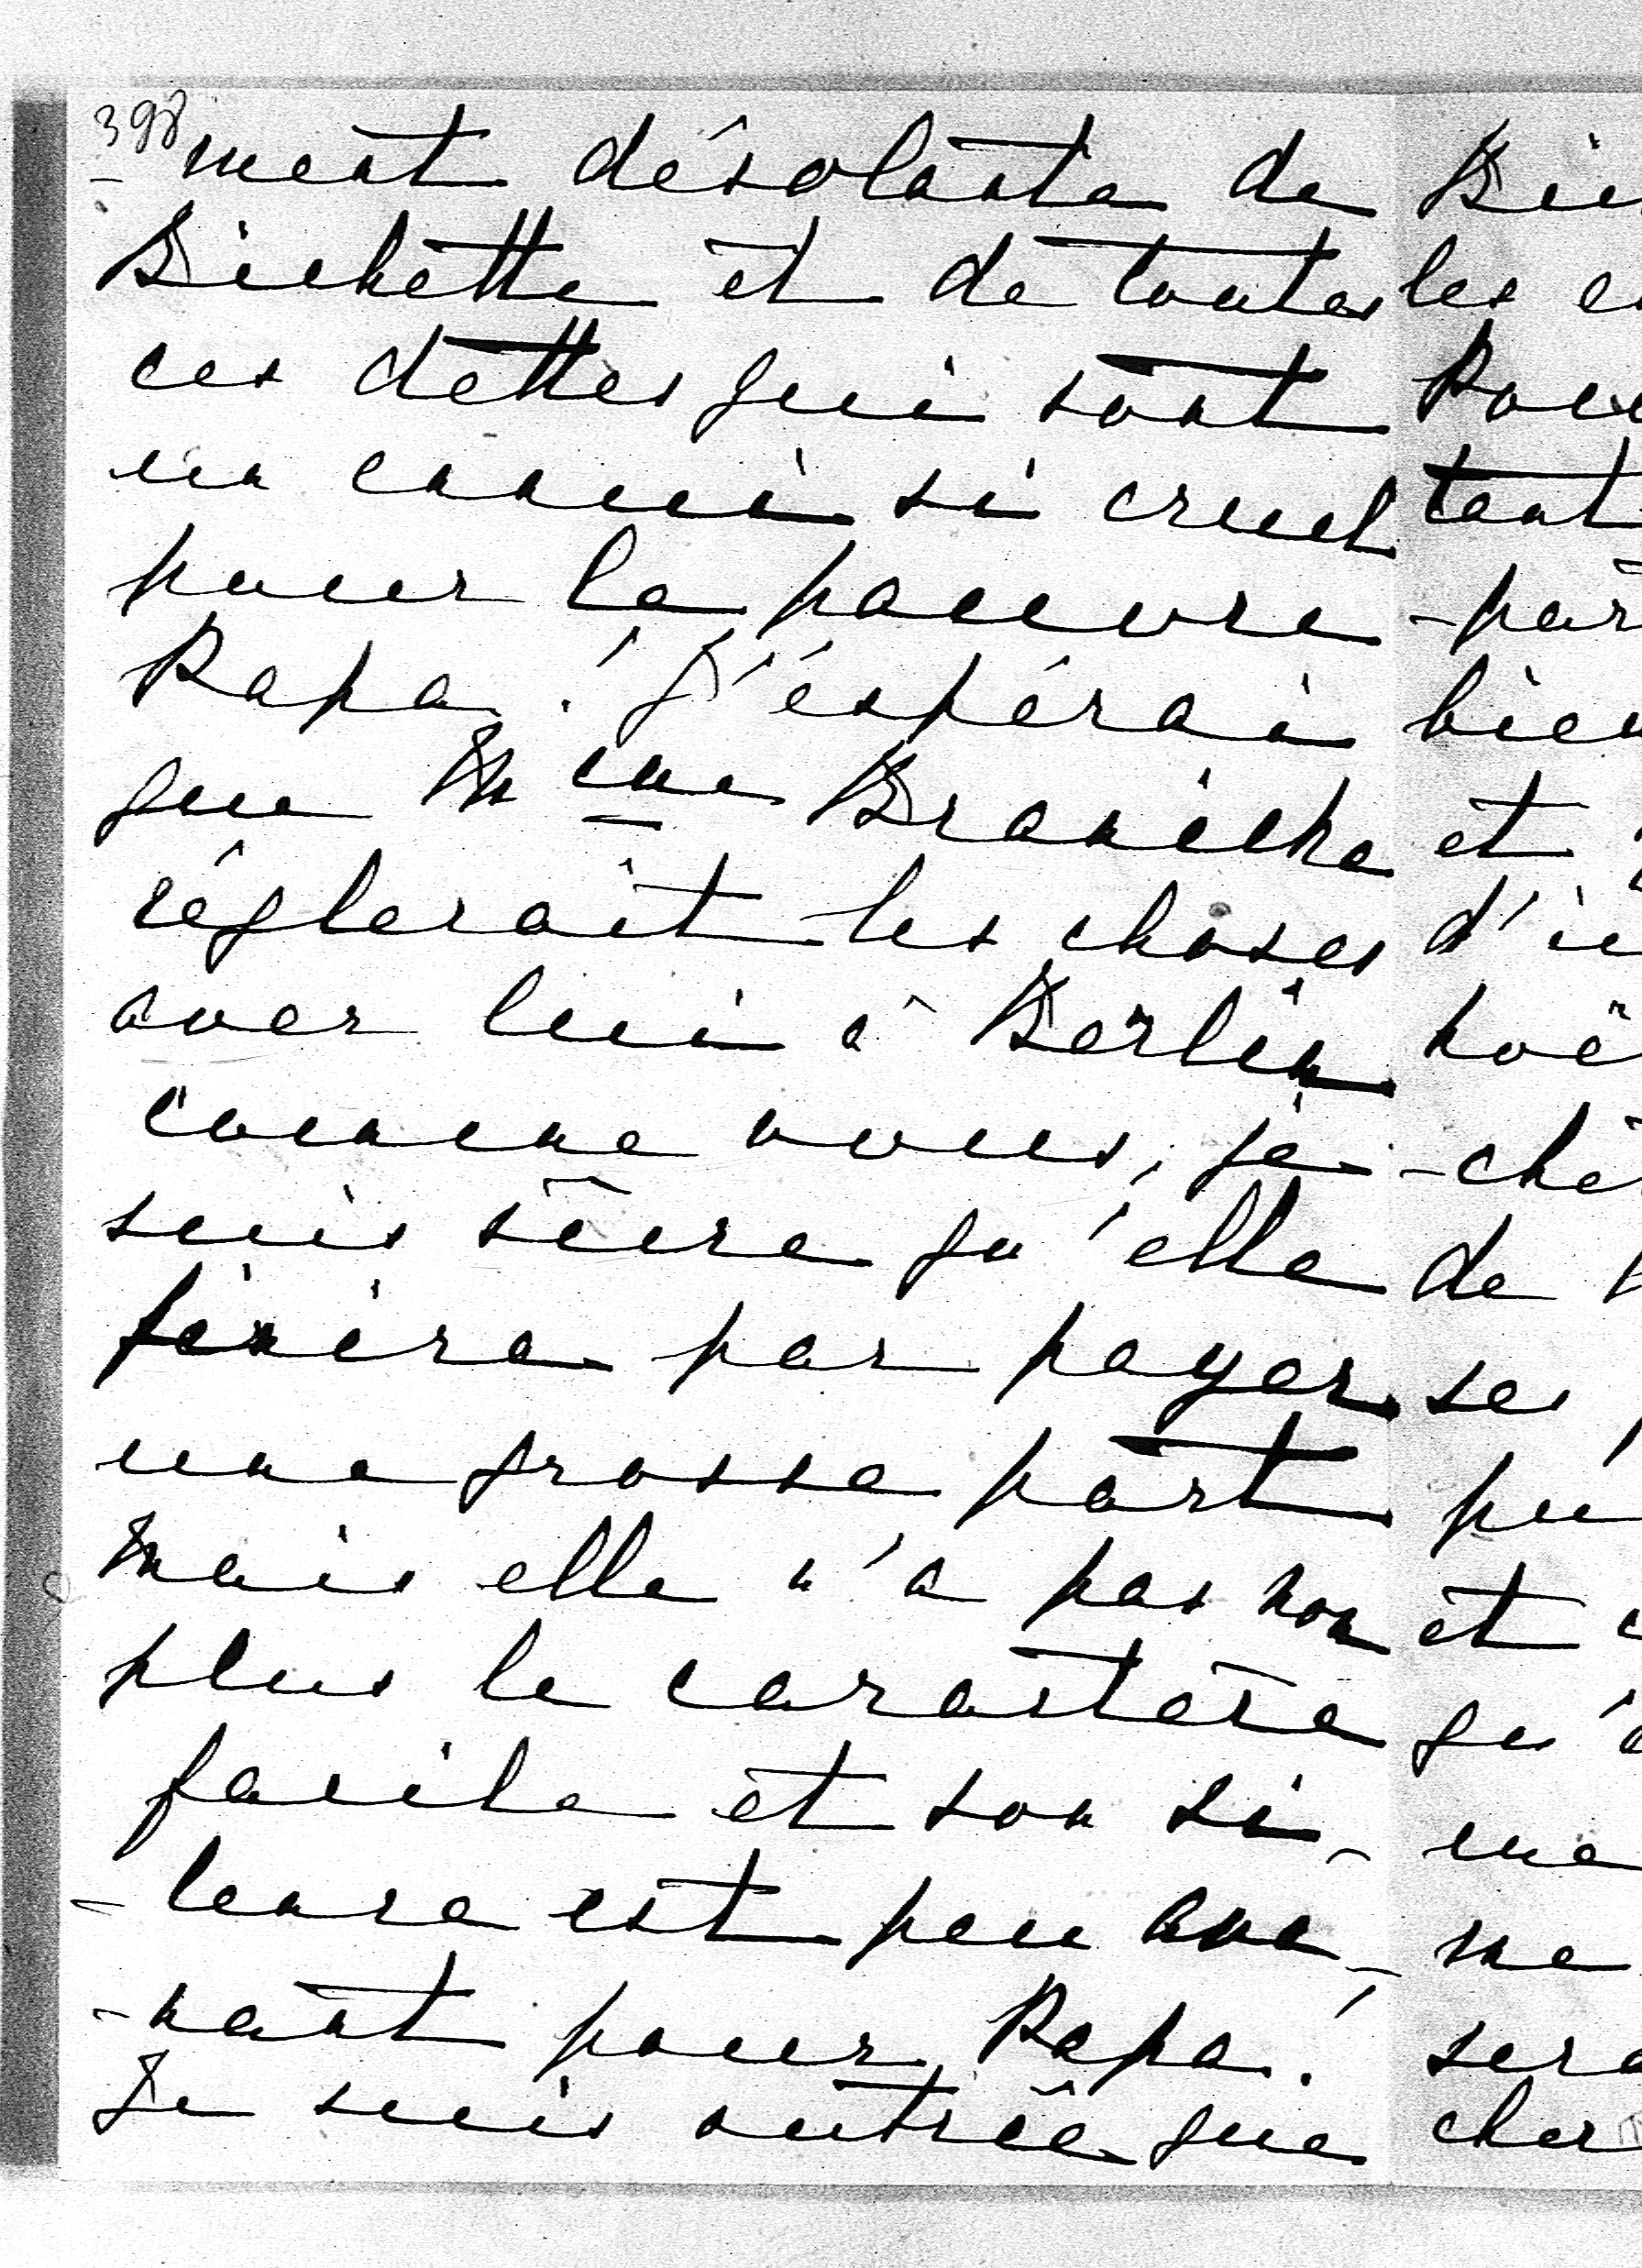 398
-ment désolante de
Bichette et de toutes
ces dettes qui sont
un ennui si cruel
pour le pauvre
Papa ! J'espérai
que Mme Branicka
réglerait les choses
avec lui à Berlin
comme vous, je
suis sûre qu'elle
finira par payer
une grosse part
Mais elle n'a pas non
plus le caractère
facile et son si-
-lence est peu ave-
-nant pour Papa !
Je suis outrée que
les
et
d'
-
de
ses
et
qu'
me
cher